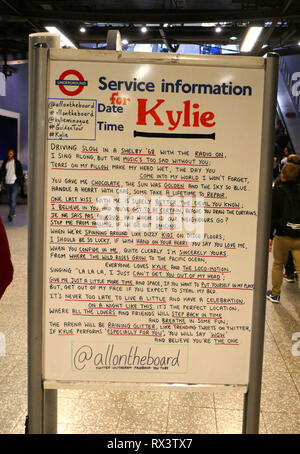 UNDERGROUND
Service information
for
Date
Time
Kylie
@allontheboard
@allontheboard
@kylieminogue
#GoldenTour
#Kylie
DRIVING SLOW IN A SHELBY '68 WITH THE RADIO ON,
I SING ALONG, BUT THE MUSIC'S TOO SAD WITHOUT YOU;
TEARS ON MY PILLOW MAKE MY HEAD WET, THE DAY YOU
COME INTO MY WORLD I WON'T FORGET,
YOU GAVE ME CHOCOLATE, THE SUN WAS GOLDEN AND THE SKY SO BLUE.
HANDLE A HEART WITH CARE, SOME TAKE A LIFETIME TO REPAIR,
ONE LAST KISS WITH ME IS SURELY BETTER THE DEVIL YOU KNOW;
I BELIEVE IN YOU AND YOU'LL GET IT FOR CERTAIN, BEFORE YOU DRAW THE CURTAINS,
JE NE SAIS PAS POURQUOI, BUT WHERE DID MY NEIGHBOURS GO?
STOP ME FROM FALLING
WHEN I'M SPINNING AROUND LIKE DIZZY KIDS ON DISCO FLOORS,
I SHOULD BE SO LUCKY IF WITH HAND ON YOUR HEART YOU SAY YOU LOVE ME,
WHEN YOU CONFIDE IN ME, QUITE CLEARLY I'M IMPOSSIBLY YOURS
FROM WHERE THE WILD ROSES GROW TO THE PACIFIC OCEAN,
EVERYONE LOVES KYLIE AND THE LOCO-MOTION,
SINGING "LA LA LA, I JUST CAN'T GET YOU OUT OF MY HEAD!"
GIVE ME JUST A LITTLE MORE TIME AND SPACE, IF YOU WANT TO PUT YOURSELF IN MY PLACE
BUT, GET OUT OF MY HEAD IF YOU EXPECT TO STEAL MY BED.
IT'S NEVER TOO LATE TO LIVE A LITTLE AND HAVE A CELEBRATION,
ON A NIGHT LIKE THIS IT'S THE PERFECT LOCATION;
WHERE ALL THE LOVERS AND FRIENDS WILL STEP BACK IN TIME
AND BREATHE IN SOME FUN;
THE ARENA WILL BE RAINING GLITTER, LIKE TRENDING TWEETS ON TWITTER,
IF KYLIE PERFORMS "ESPECIALLY FOR YOU", YOU WILL SAY 'WOW'
AND BELIEVE YOU'RE THE ONE
@allontheboard
TWITTER INSTAGRAM FACEBOOK YOU TUBE